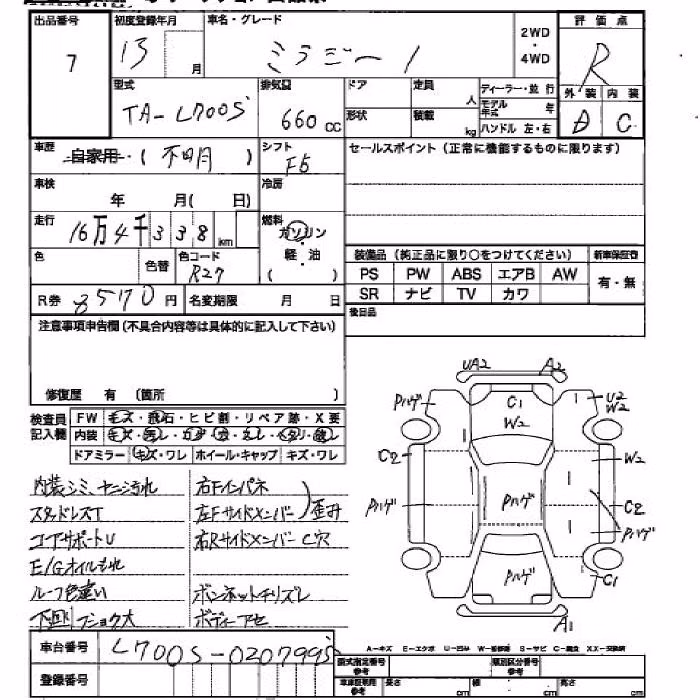 出品番号 初度登録年月 車名・グレード 2WD・4WD 評価点
7 13 月 ミラジーノ R
型式 排気量 ドア 定員 人 ディーラー・並行 外装 内装
TA-L700S 660cc 形状 積載 kg モデル年式 年 ハンドル 左・右 D C
車歴 自家用・( 不明 ) シフト F5 セールスポイント(正常に機能するものに限ります)
車検 年 月( 日) 冷房
走行 16万4千338km 燃料 ガソリン・軽油 ( )
色 色替 色コード R27
装備品(純正品に限り○をつけてください) 新車保証書
PS PW ABS エアB AW 有・無
SR ナビ TV カワ
R券 8570円 名変期限 月 日 後日品
注意事項申告欄(不具合内容等は具体的に記入して下さい)
修復歴 有 (箇所 )
検査員記入欄 FW キズ・飛石・ヒビ割・リペア跡・X要
内装 キズ・汚レ・
ドアミラー キズ・ワレ ホイール・キャップ キズ・ワレ
UA2 A2
Pハゲ C1 W2 U2 W2
C2 W2
Pハゲ Pハゲ C2
Pハゲ
Pハゲ C1
A1
内装シミ、ヤニ汚れ 右Fインパネ
スタッドレスT 左Fサイドメンバー 歪み
コアサポートU 右Rサイドメンバー C穴
E/Gオイルもれ
ルーフ色違い ボンネットチリズレ
下回りショク大 ボディーアセ
A-キズ E-エクボ U-凹み W-補修跡 S-サビ C-腐食 XX-交換済
車台番号 L700S-0207995
登録番号
型式指定番号 参考 類別区分番号 参考
車庫証明用 参考 長さ cm 幅 cm 高さ cm